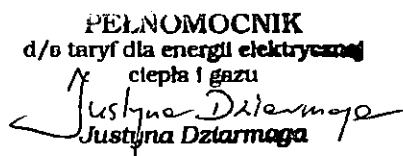 PEŁNOMOCNIK
d/s taryf dla energii elektrycznej
ciepła i gazu
Justyna Dziarmaga
Justyna Dziarmaga